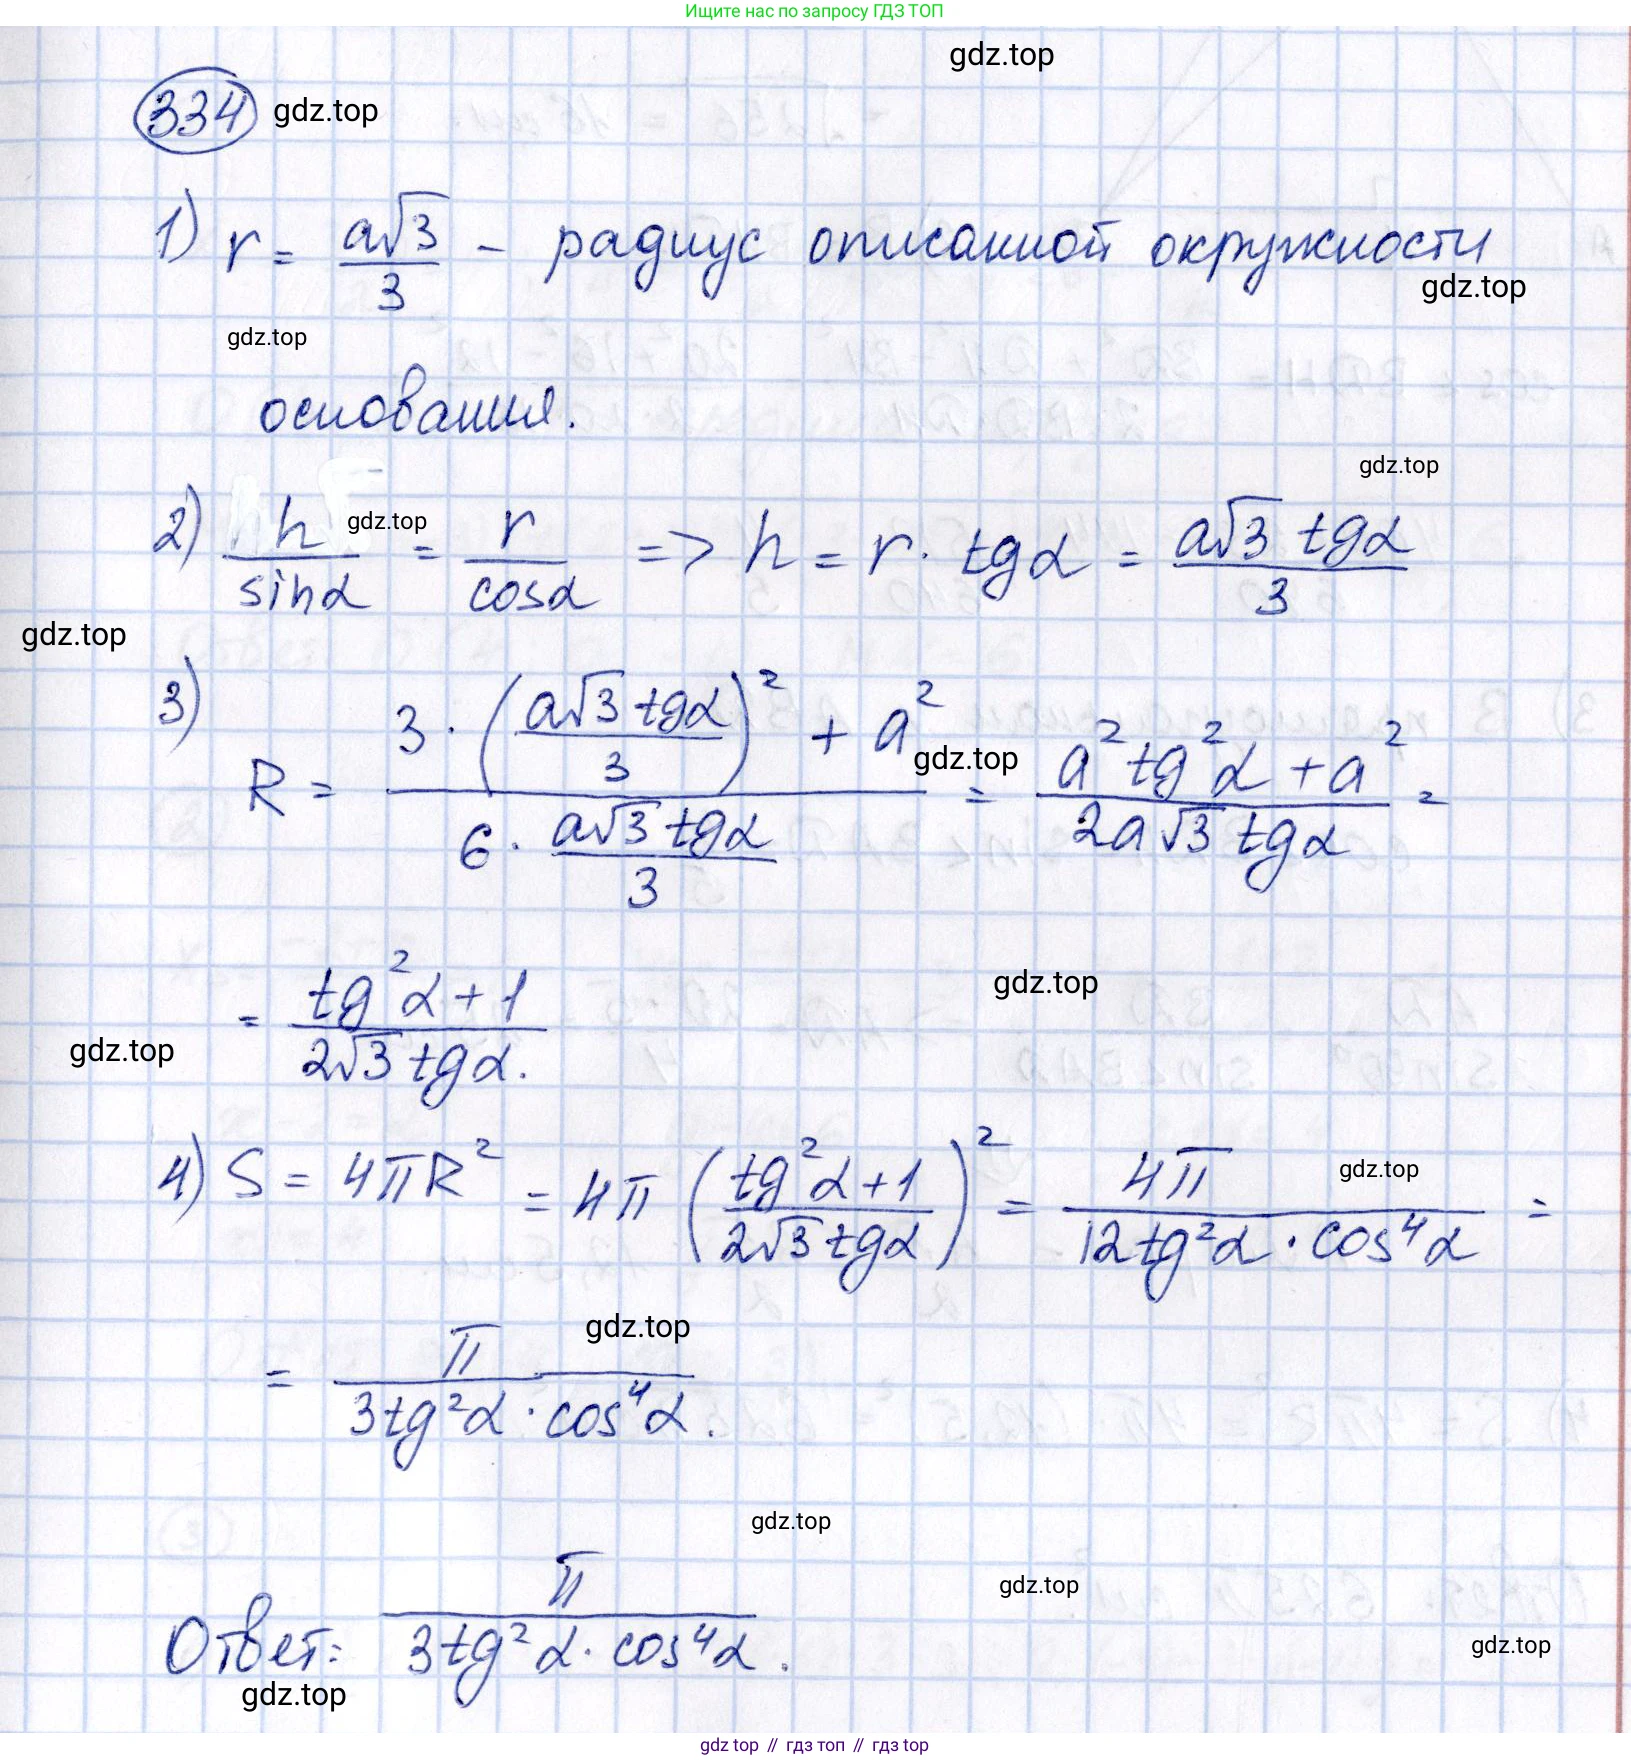 Ищите нас по запросу ГДЗ ТОП
gdz.top
334 gdz.top
1) r = a√3/3 - радиус описанной окружности
gdz.top
gdz.top
основания.
gdz.top
2) h/sinα = r/cosα => h = r · tgα = a√3 tgα/3
gdz.top
gdz.top
3) R = (3 · (a√3 tgα/3)² + a²)/(6 · a√3 tgα/3) = (a²tg²α + a²)/(2a√3 tgα) =
gdz.top
= (tg²α + 1)/(2√3 tgα).
gdz.top
gdz.top
4) S = 4πR² = 4π ((tg²α + 1)/(2√3 tgα))² = 4π/(12tg²α · cos⁴α) =
gdz.top
= π/(3tg²α · cos⁴α).
gdz.top
gdz.top
gdz.top
Ответ: π/(3tg²α · cos⁴α).
gdz.top
gdz.top
gdz top // гдз топ // гдз top